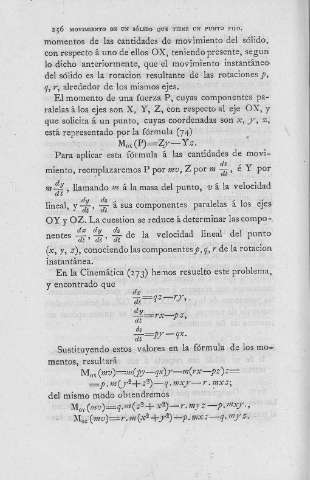 256 MOVIMIENTO DE UN SÓLIDO QUE TIENE UN PUNTO FIJO.
momentos de las cantidades de movimiento del sólido,
con respecto á uno de ellos OX, teniendo presente, segun
lo dicho anteriormente, que el movimiento instantáneo
del sólido es la rotacion resultante de las rotaciones p,
q, r, alrededor de los mismos ejes.
El momento de una fuerza P, cuyas componentes pa-
ralelas á los ejes son X, Y, Z, con respecto al eje OX, y
que solicita á un punto, cuyas coordenadas son x, y, z,
está representado por la fórmula (74)
Mox(P)=Zy—Yz.
Para aplicar esta fórmula á las cantidades de movi-
miento, reemplazaremos P por mv, Z por m dz/dt, é Y por
m dy/dt, llamando m á la masa del punto, v á la velocidad
lineal, y dy/dt, dz/dt á sus componentes paralelas á los ejes
OY y OZ. La cuestion se reduce á determinar las compo-
nentes dx/dt, dy/dt, dz/dt de la velocidad lineal del punto
(x, y, z), conociendo las componentes p, q, r de la rotacion
instantánea.
En la Cinemática (273) hemos resuelto este problema,
y encontrado que
dx/dt=qz—ry,
dy/dt=rx—pz,
dz/dt=py—qx.
Sustituyendo estos valores en la fórmula de los mo-
mentos, resultará
Mox(mv)=m(py—qx)y—m(rx—pz)z=
=p.m(y²+z²)—q.mxy—r.mxz;
del mismo modo obtendremos
Moy(mv)=q.m(z²+x²)—r.myz—p.mxy.,
Moz(mv)=r.m(x²+y²)—p.mxz—q.myz.